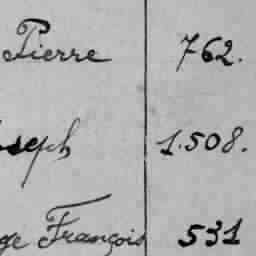 Pierre 762.
seph 1.508.
ge François 531